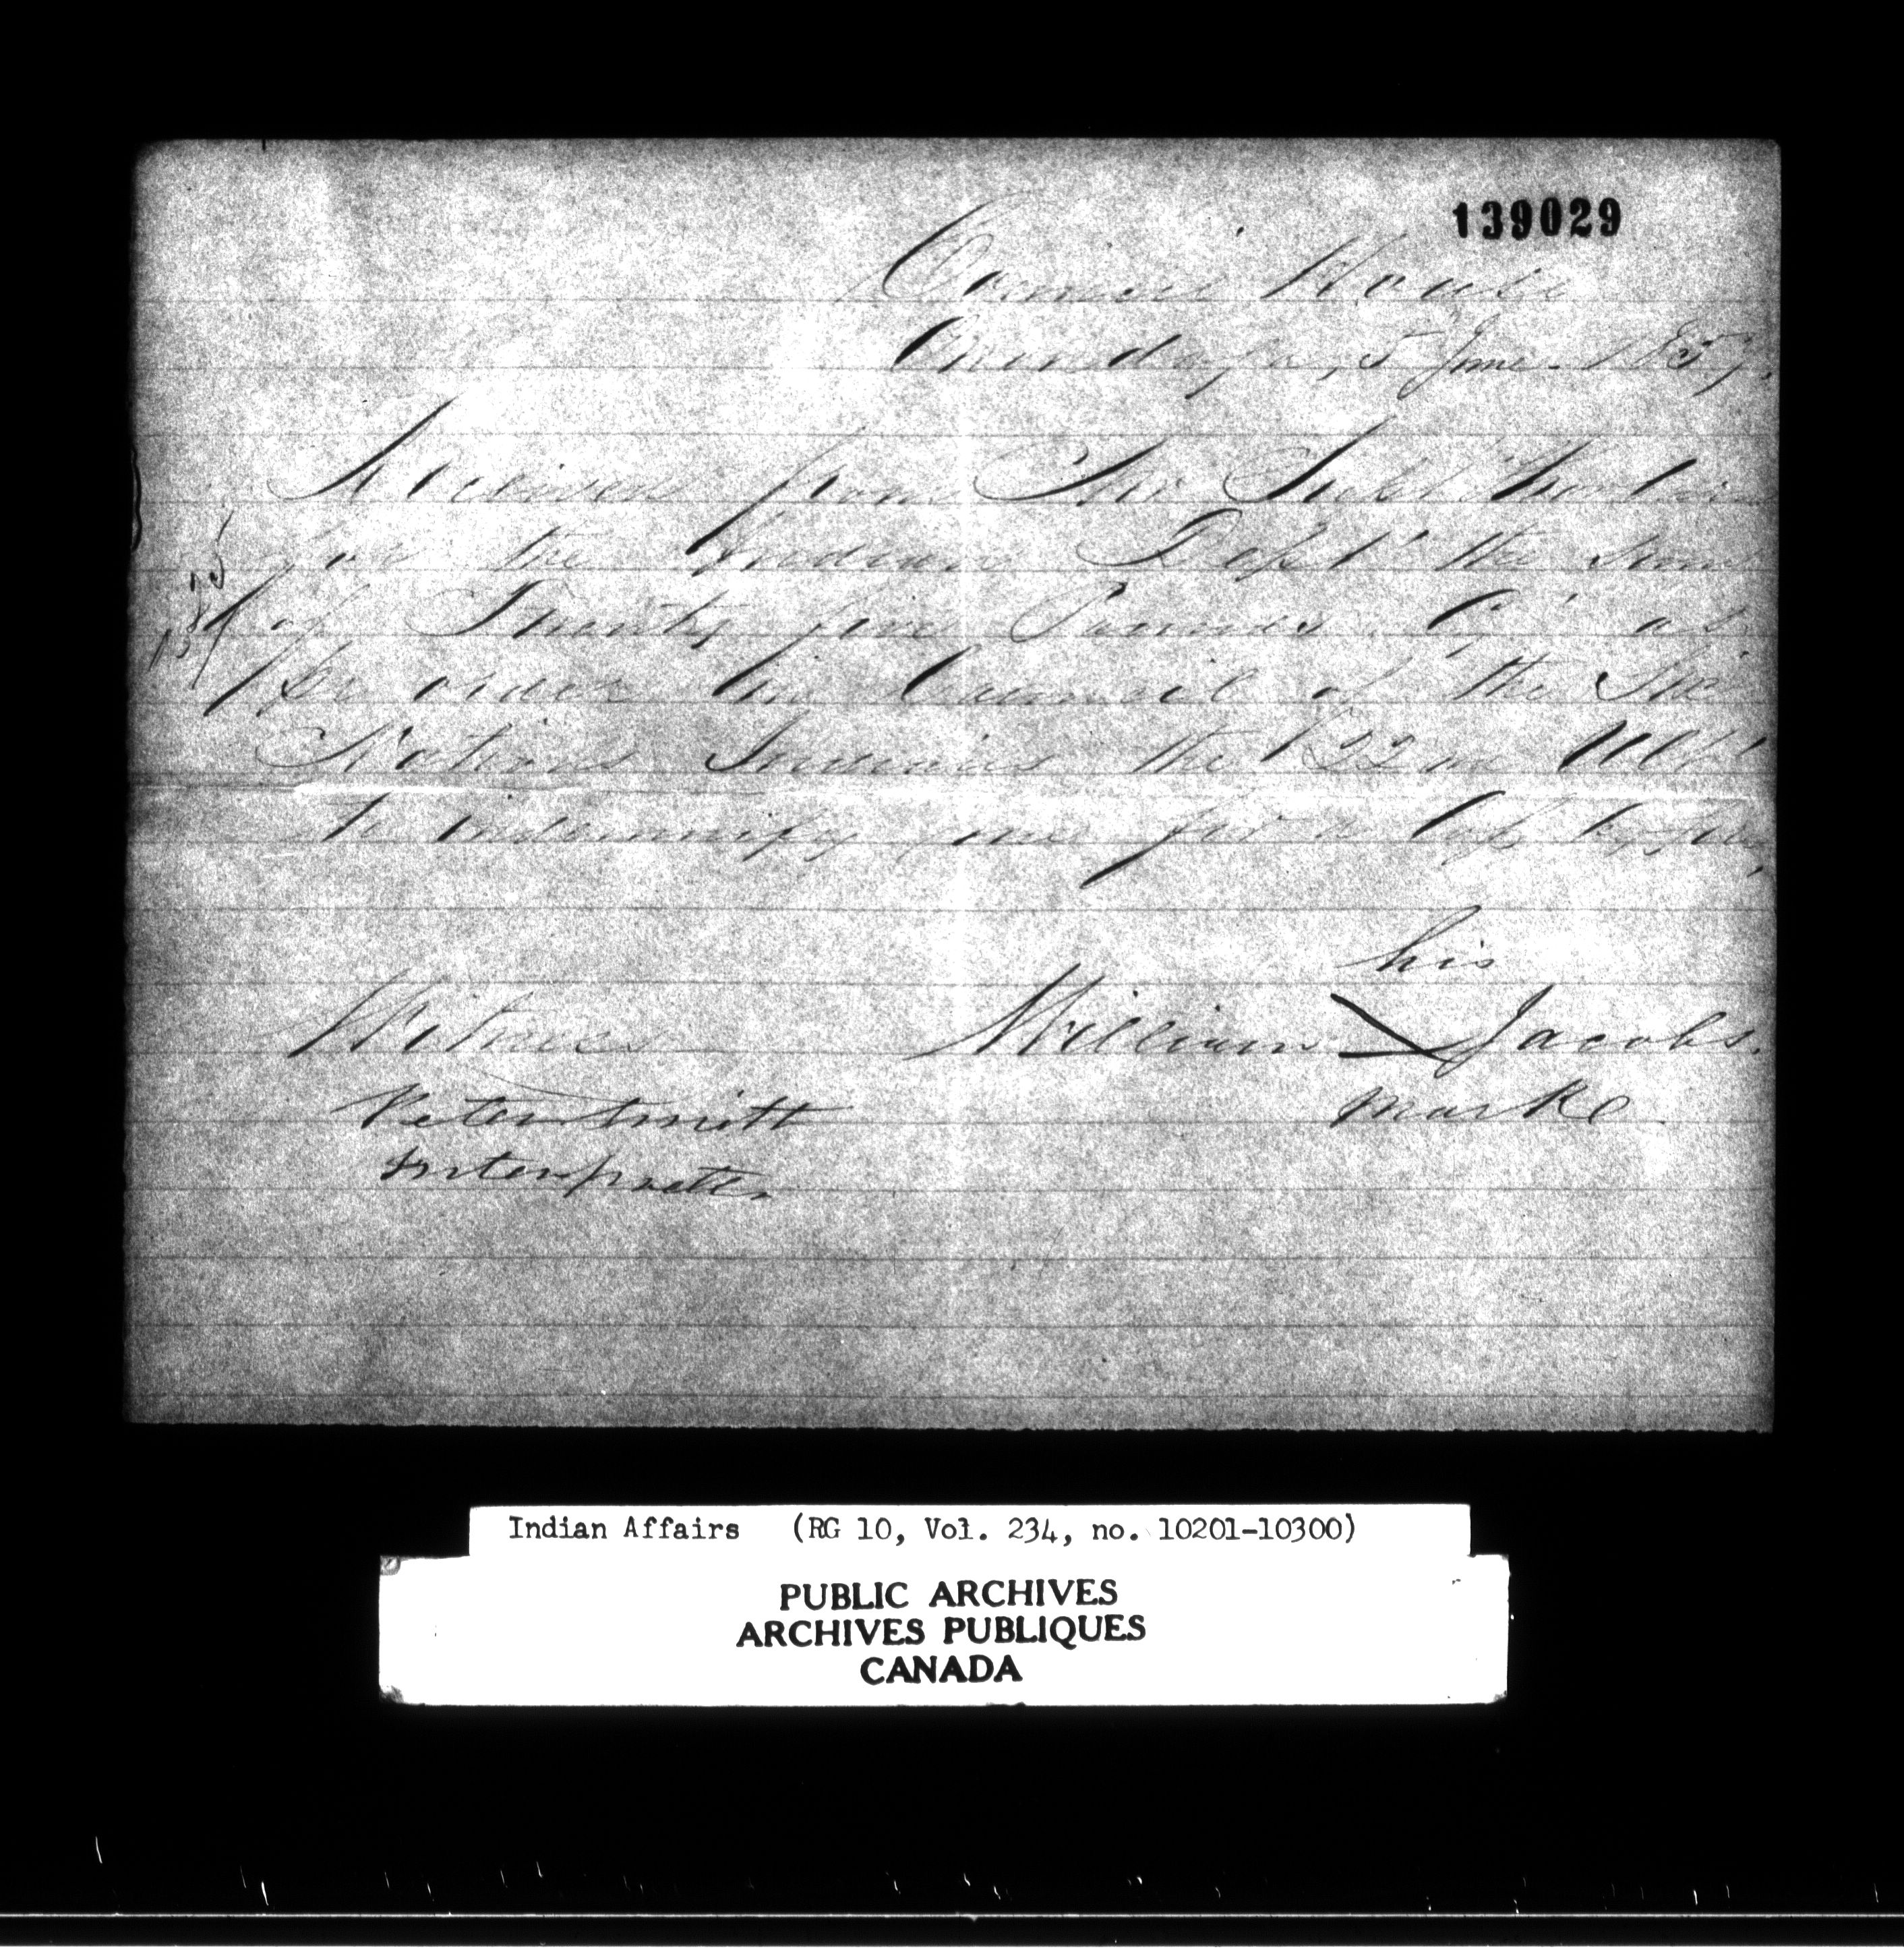 139029
Council House
Onondaga, 5 June 1857.
Received from The
for the Indian Dept the Sum
of Twenty five Pounds Cy as
per order in Council of the Six
Nations Indians the 22nd Ult
to indemnify me for a loss by fire,
£25
his
Witness William Jacobs.
marke
Peter Smith
Interpretter
Indian Affairs (RG 10, Vol. 234, no. 10201-10300)
PUBLIC ARCHIVES
ARCHIVES PUBLIQUES
CANADA